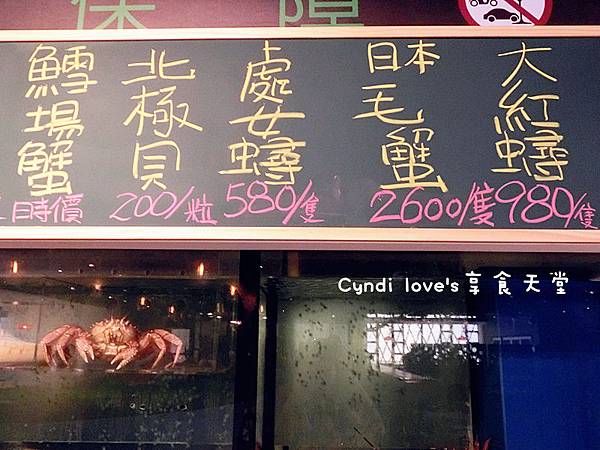 保 障
鱈場蟹
時價
北極貝
200/粒
處女蟳
580/隻
日本毛蟹
2600/隻
大紅蟳
980/隻
Cyndi love's享食天堂